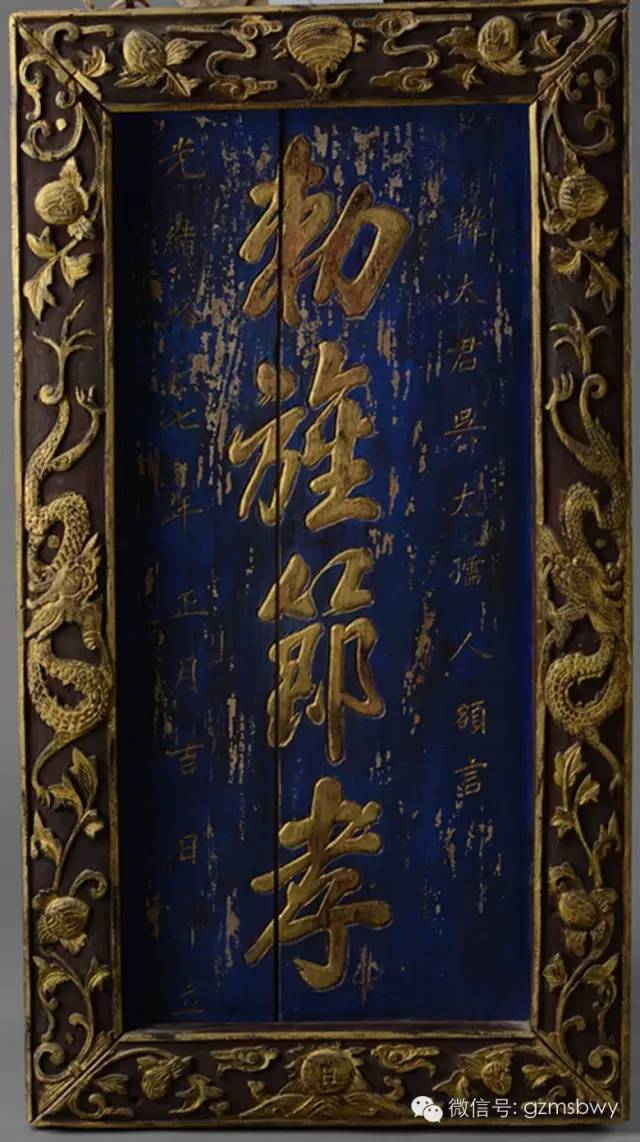 韓太君吳大孺人
勅旌節孝
光緒拾七年正月吉日立
日
微信号: gzmsbwy